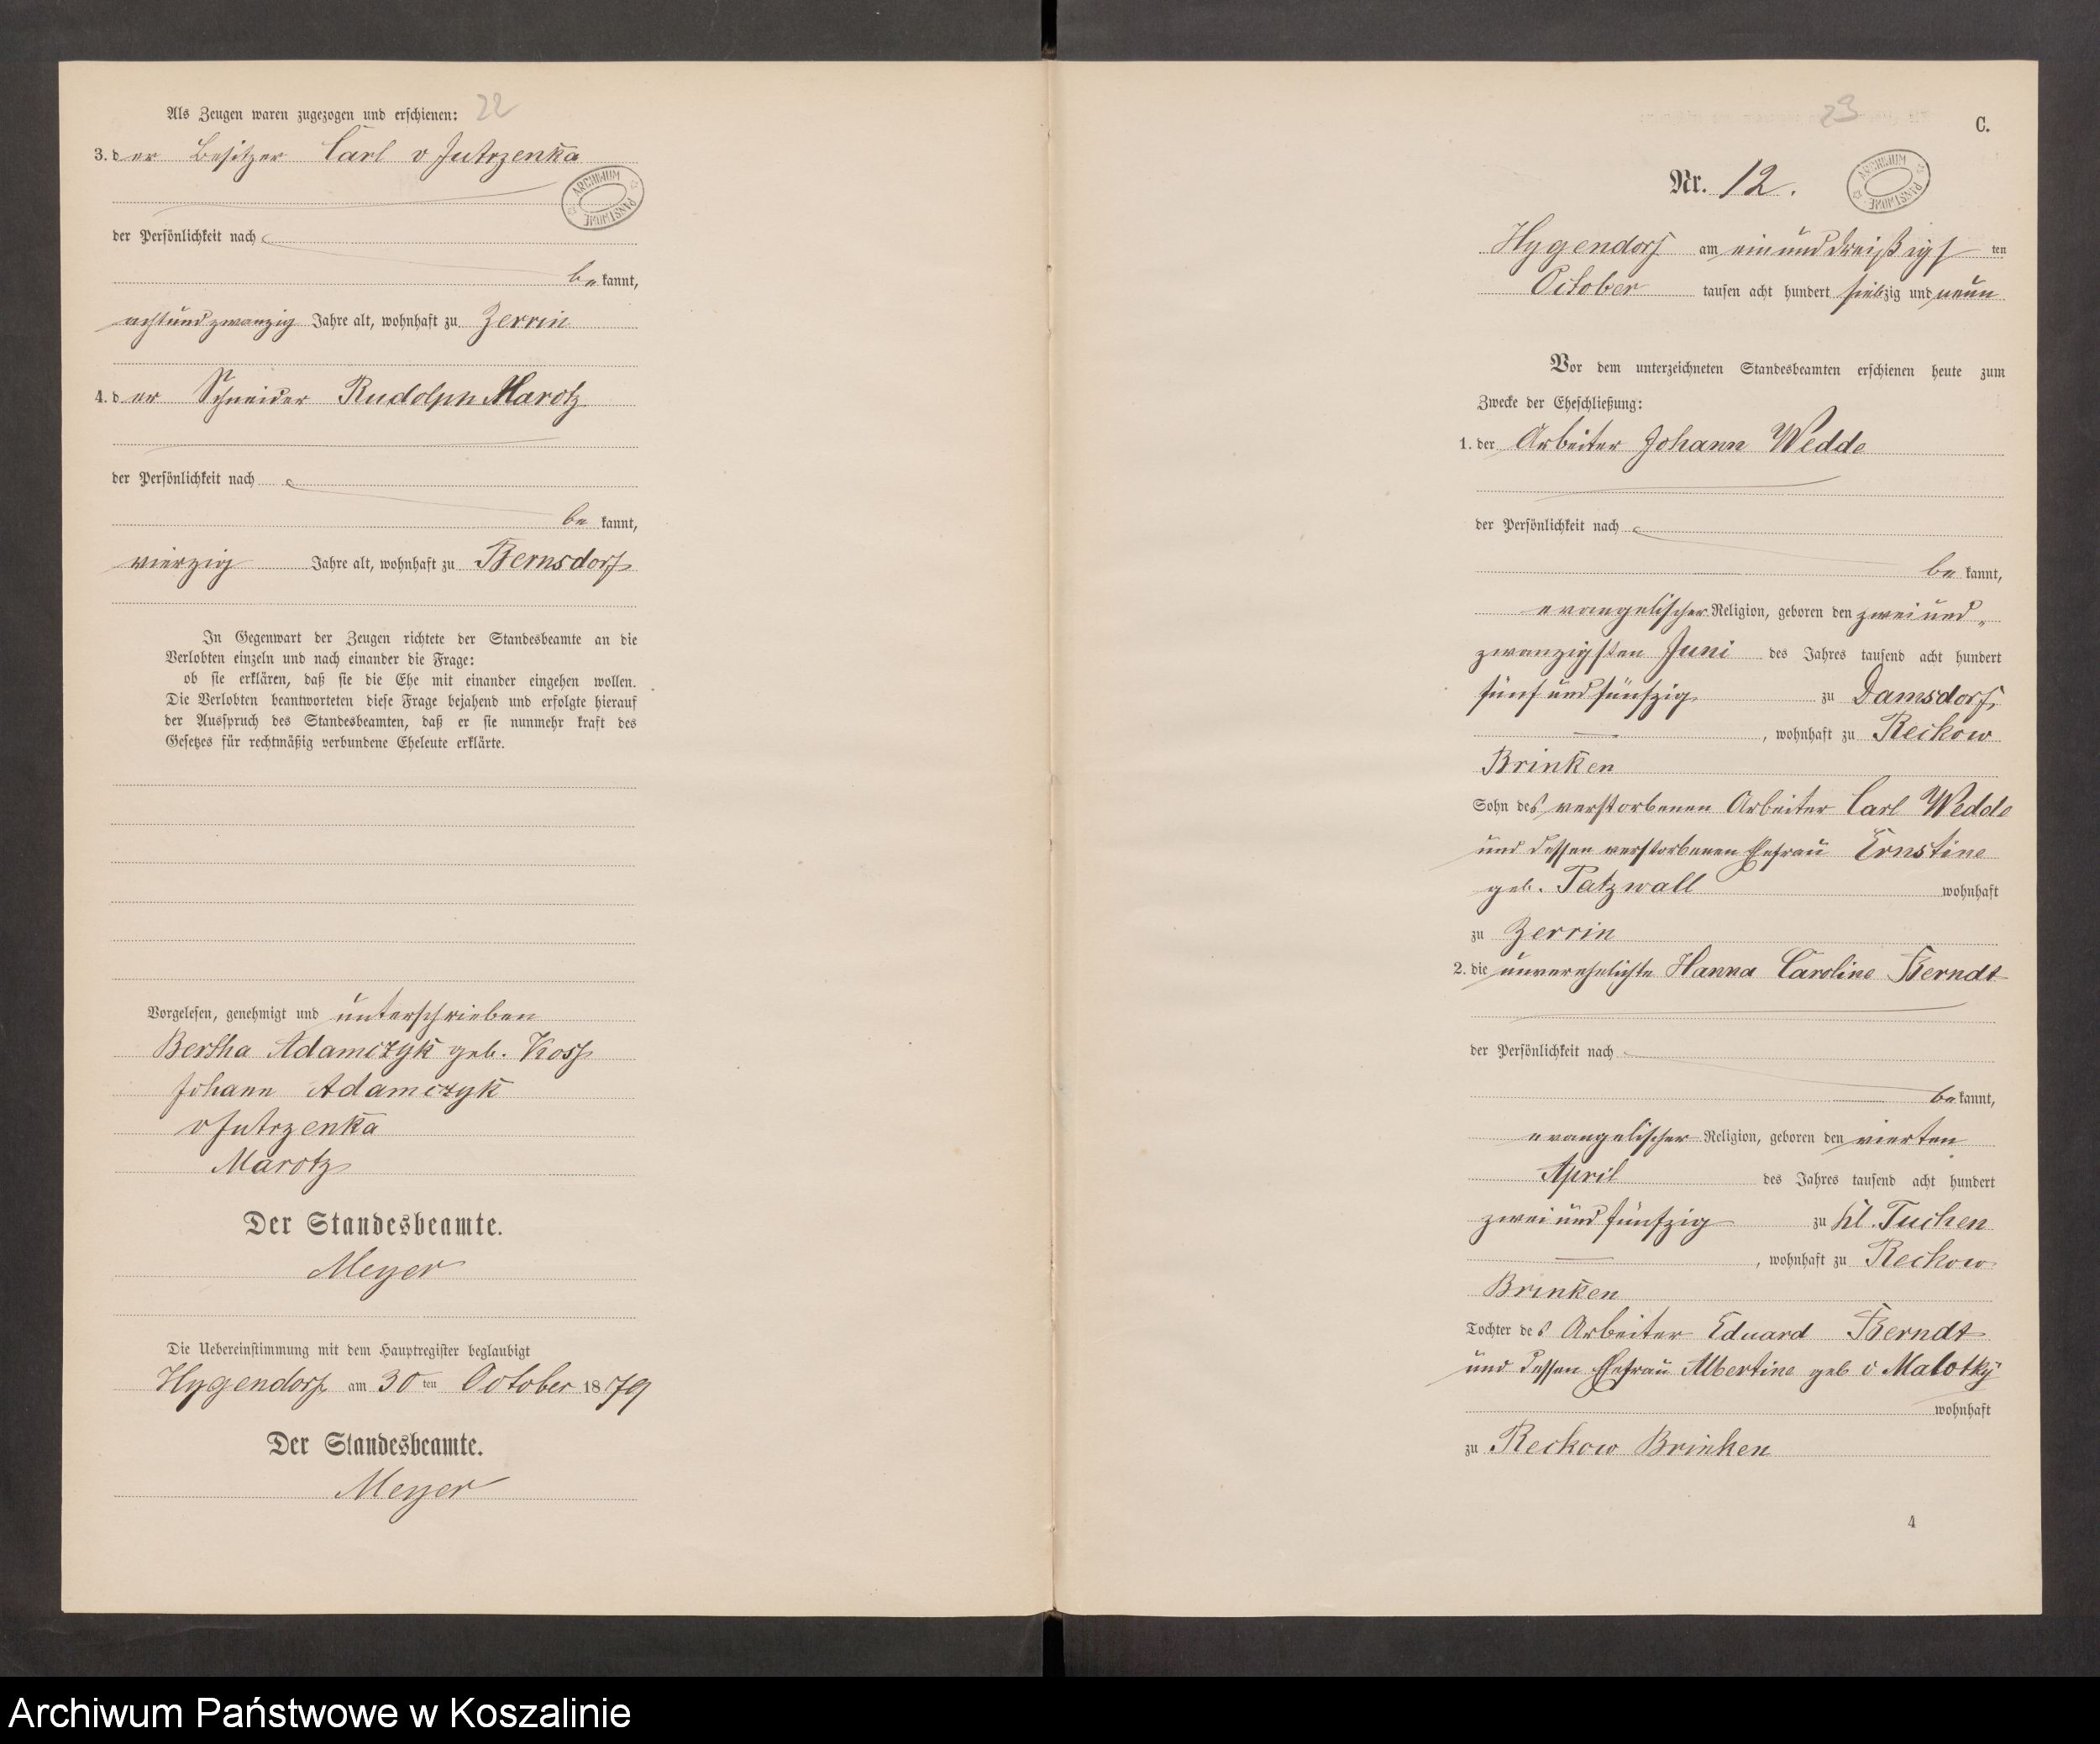 Als Zeugen waren zugezogen und erschienen: 22
3. der Besitzer Carl v Jutrzenka
ARCHIWUM PAŃSTWOWE
der Persönlichkeit nach
bekannt,
achtundzwanzig Jahre alt, wohnhaft zu Zerrin
4. der Schneider Rudolph Marotz
der Persönlichkeit nach
be kannt,
vierzig Jahre alt, wohnhaft zu Bernsdorf
In Gegenwart der Zeugen richtete der Standesbeamte an die
Verlobten einzeln und nach einander die Frage:
ob sie erklären, daß sie die Ehe mit einander eingehen wollen.
Die Verlobten beantworteten diese Frage bejahend und erfolgte hierauf
der Ausspruch des Standesbeamten, daß er sie nunmehr kraft des
Gesetzes für rechtmäßig verbundene Eheleute erklärte.
Vorgelesen, genehmigt und unterschrieben
Bertha Adamczyk geb. Koss
Johann Adamczyk
v Jutrzenka
Marotz
Der Standesbeamte.
Meyer
Die Uebereinstimmung mit dem Hauptregister beglaubigt
Hygendorf am 30 ten October 1879
Der Standesbeamte.
Meyer
23
C.
Nr. 12.
ARCHIWUM PAŃSTWOWE
Hygendorf am einunddreißigs ten
October tausen acht hundert siebzig und neun
Vor dem unterzeichneten Standesbeamten erschienen heute zum
Zwecke der Eheschließung:
1. der Arbeiter Johann Wedde
der Persönlichkeit nach
be kannt,
evangelischer Religion, geboren den zweiund„
zwanzigsten Juni des Jahres tausend acht hundert
fünf und fünfzig zu Damsdorf,
, wohnhaft zu Reckow
Brinken
Sohn des verstorbenen Arbeiter Carl Wedde
und dessen verstorbenen Ehefrau Ernstine
geb. Patzwall wohnhaft
zu Zerrin
2. die unverehelichte Hanna Caroline Berndt
der Persönlichkeit nach
bekannt,
evangelischer Religion, geboren den vierten
April des Jahres tausend acht hundert
zwei und fünfzig zu Kl. Tuchen
, wohnhaft zu Reckow
Brinken
Tochter des Arbeiter Eduard Berndt
und dessen Ehefrau Albertine geb v Malotky
wohnhaft
zu Reckow Brinken
4
Archiwum Państwowe w Koszalinie